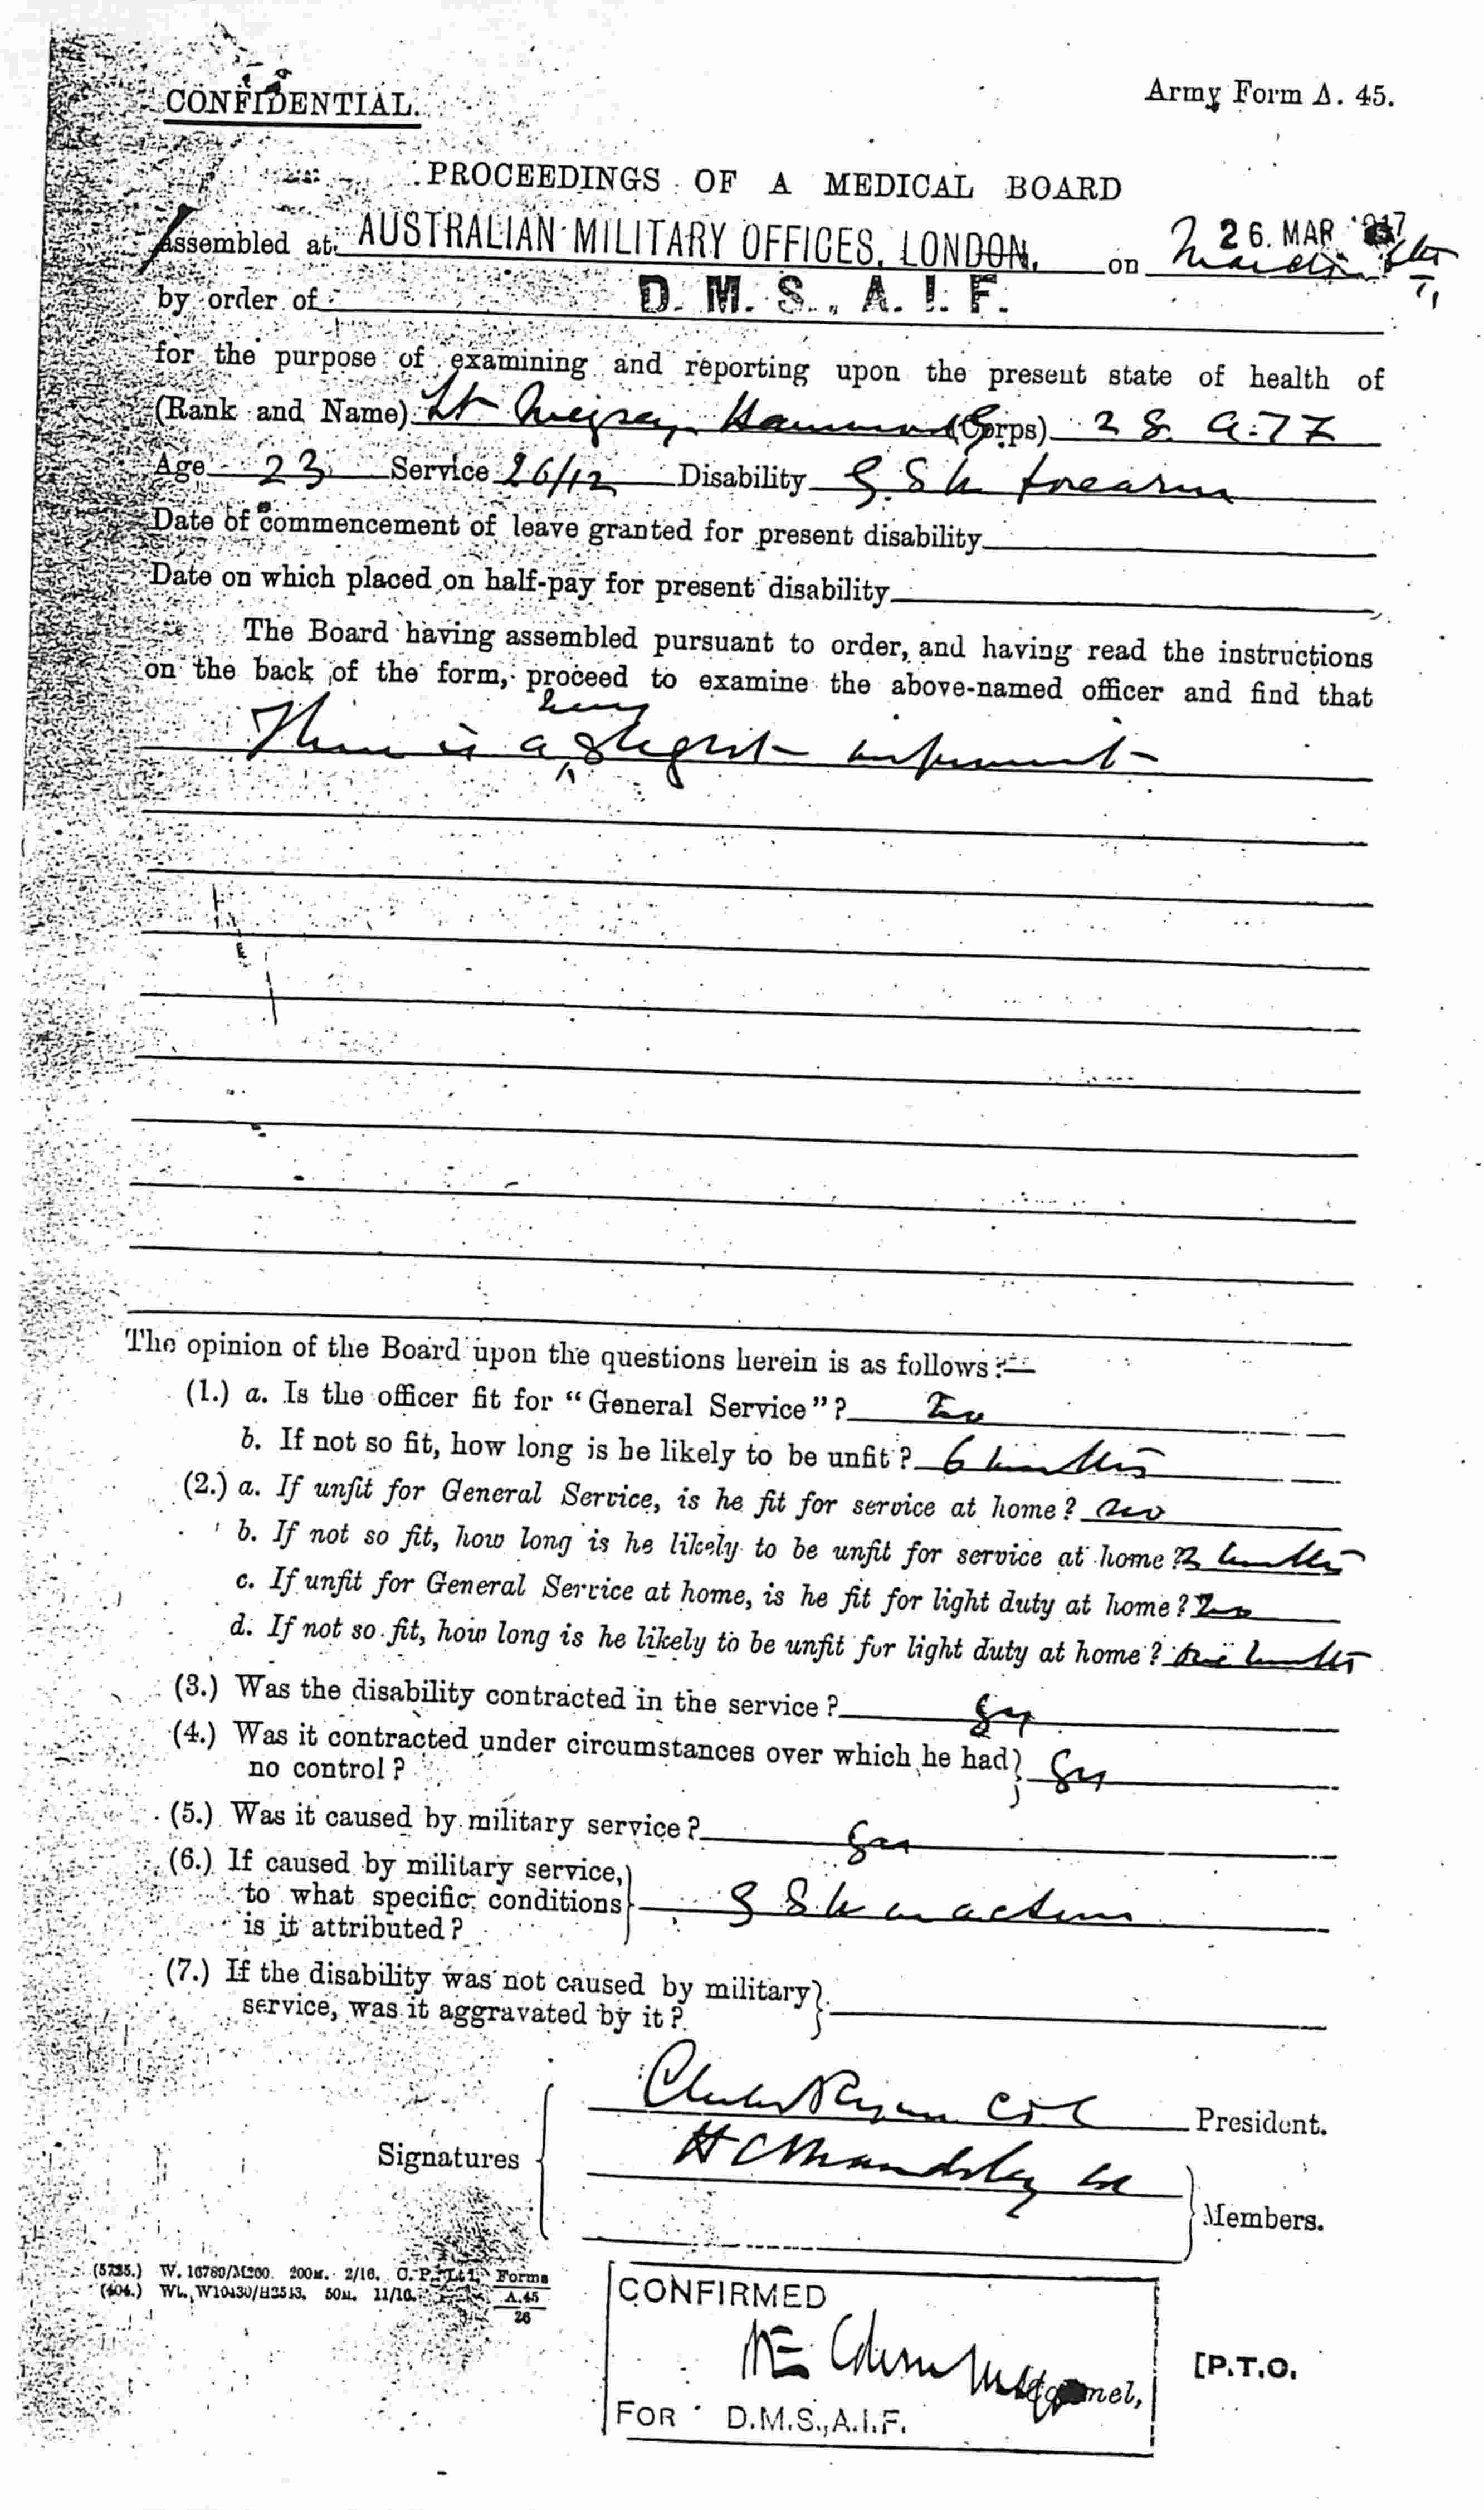 CONFIDENTIAL.
Army Form A. 45.
PROCEEDINGS OF A MEDICAL BOARD
Assembled at AUSTRALIAN MILITARY OFFICES, LONDON. on 26. MAR 1917
by order of D. M. S., A. I. F.
for the purpose of examining and reporting upon the present state of health of
(Rank and Name) Lt (Corps) 28.
Age 23 Service 26/12 Disability G.S.W forearm
Date of commencement of leave granted for present disability
Date on which placed on half-pay for present disability
The Board having assembled pursuant to order, and having read the instructions
on the back of the form, proceed to examine the above-named officer and find that
very
There is a slight improvement
The opinion of the Board upon the questions herein is as follows:—
(1.) a. Is the officer fit for "General Service"? No
b. If not so fit, how long is he likely to be unfit? 6 months
(2.) a. If unfit for General Service, is he fit for service at home? No
b. If not so fit, how long is he likely to be unfit for service at home? months
c. If unfit for General Service at home, is he fit for light duty at home? No
d. If not so fit, how long is he likely to be unfit for light duty at home? months
(3.) Was the disability contracted in the service?
(4.) Was it contracted under circumstances over which he had
no control?
(5.) Was it caused by military service?
(6.) If caused by military service,
to what specific conditions G S W in action
is it attributed?
(7.) If the disability was not caused by military
service, was it aggravated by it?
Col President.
Signatures
Members.
(5725.) W. 16780/M1200. 200M. 2/16. C. P., Ltd. Forms
(404.) Wt., W10430/H2513. 50M. 11/16. A.45
26
CONFIRMED
[P.T.O.
FOR D.M.S., A.I.F.